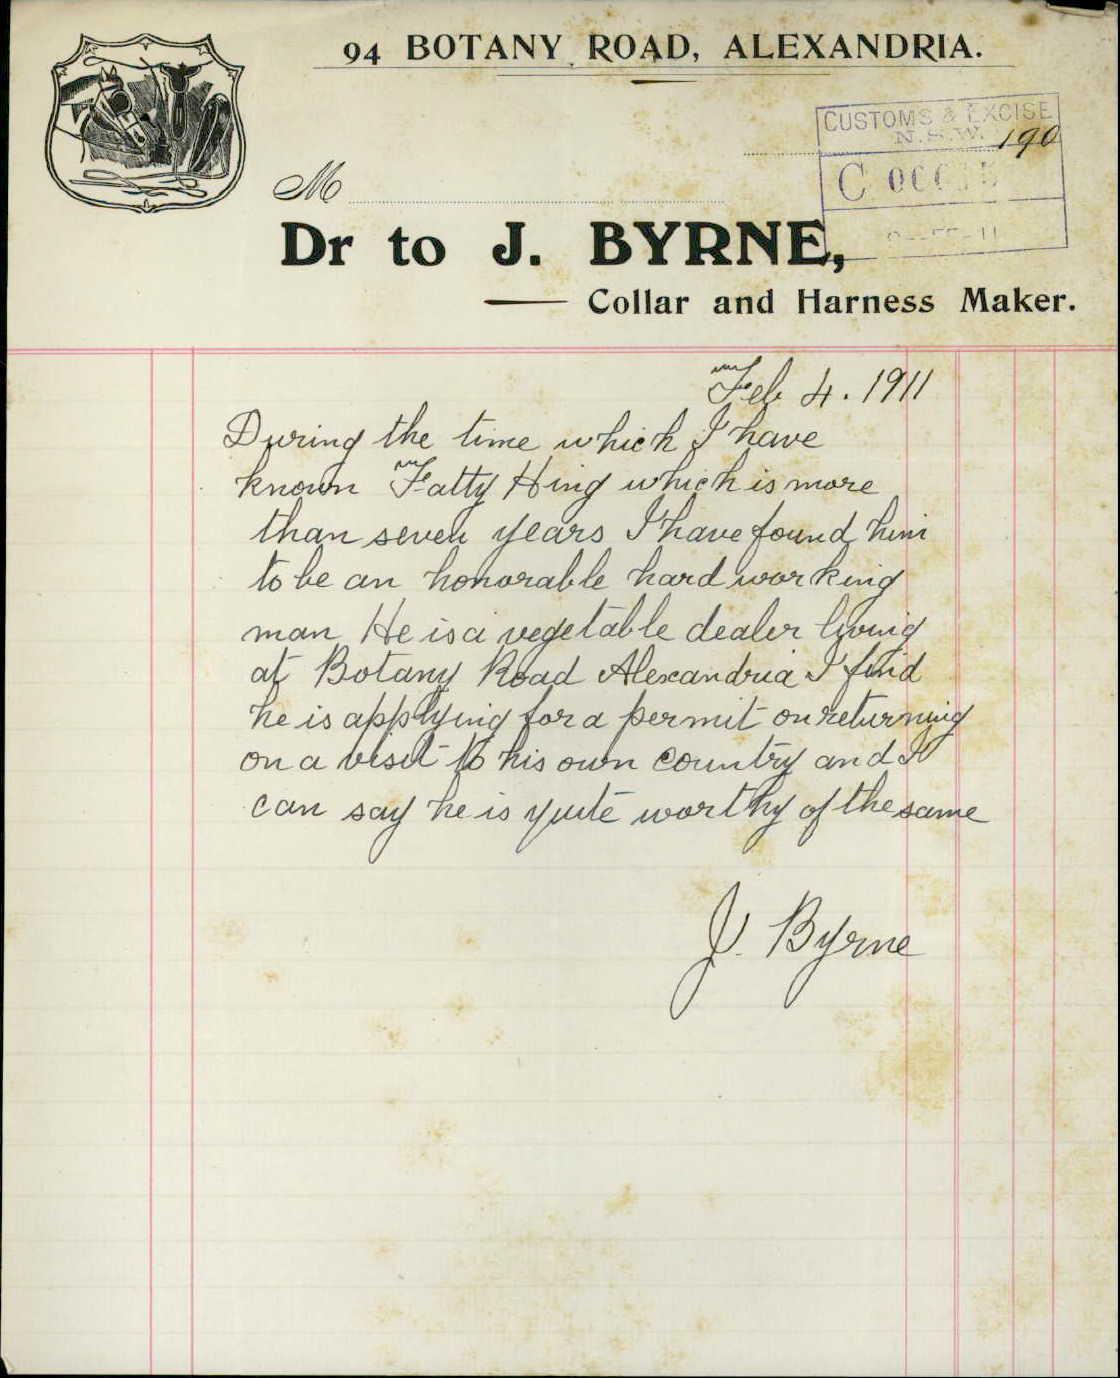 94 BOTANY ROAD, ALEXANDRIA.
CUSTOMS & EXCISE
N.S.W.
190
M
Dr to J. BYRNE,
Collar and Harness Maker.
Feb 4. 1911
During the time which I have
known Fatty Hing which is more
than seven years I have found him
to be an honorable hard working
man He is a vegetable dealer living
at Botany Road Alexandria I find
he is applying for a permit on returning
on a visit to his own country and I
can say he is quite worthy of the same
J. Byrne